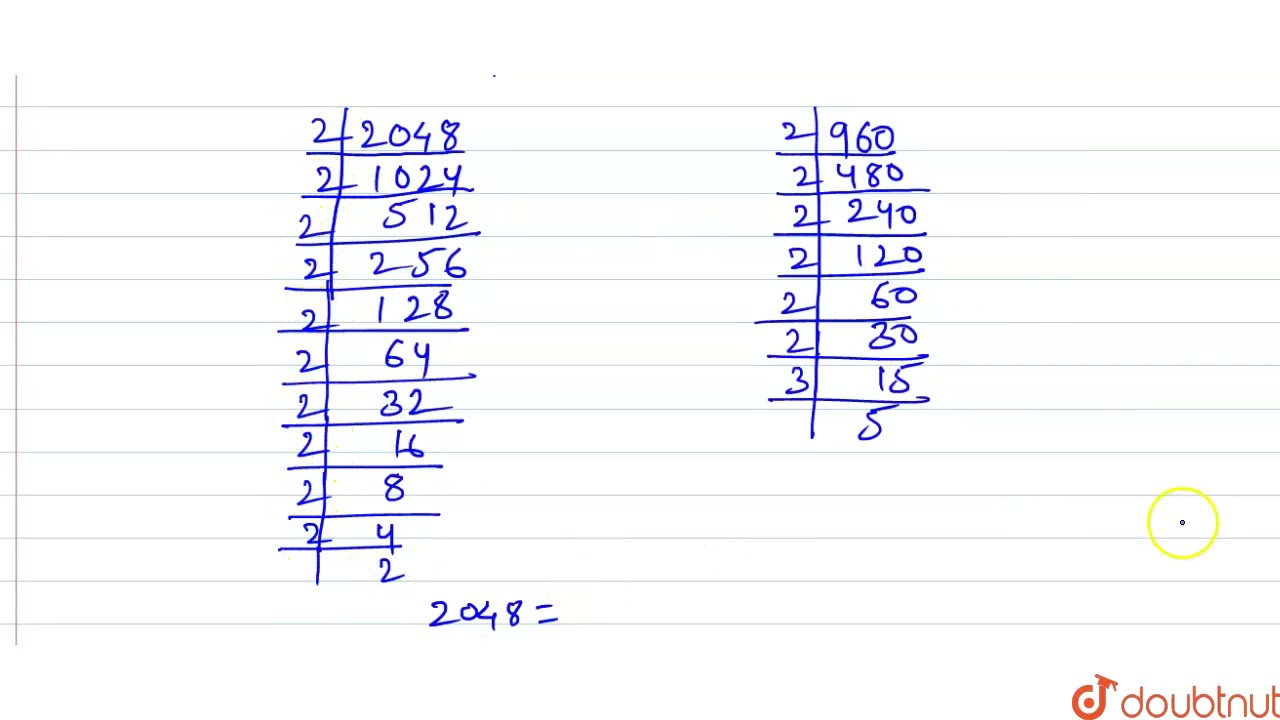 2 2048
2 1024
2 512
2 256
2 128
2 64
2 32
2 16
2 8
2 4
2
2048 =
2 960
2 480
2 240
2 120
2 60
2 30
3 15
5
doubtnut